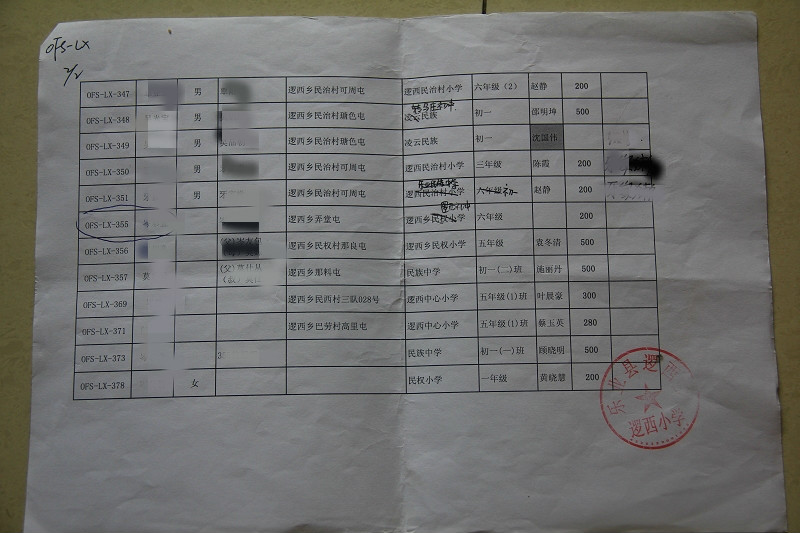 OFS-LX
2/2
OFS-LX-347 男 逻西乡民治村可周屯 逻西民治村小学 六年级(2) 赵静 200
OFS-LX-348 男 逻西乡民治村瑭色屯 凌云民族 初一 邵明坤 500
OFS-LX-349 男 逻西乡民治村瑭色屯 凌云民族 初一 沈国伟
OFS-LX-350 男 逻西乡民治村可周屯 逻西民治村小学 三年级 陈霞 200
OFS-LX-351 男 牙 逻西乡民治村可周屯 逻西民治村小学 六年级 初一 赵静 200
OFS-LX-355 逻西乡弄堂屯 逻西乡民权小学 六年级 200
OFS-LX-356 逻西乡民权村那良屯 逻西乡民权小学 五年级 袁冬清 500
OFS-LX-357 莫 (父) 逻西乡那料屯 民族中学 初一(二)班 施丽丹 500
OFS-LX-369 逻西乡民西村三队028号 逻西中心小学 五年级(1)班 叶晨豪 300
OFS-LX-371 逻西乡巴劳村高里屯 逻西中心小学 五年级(1)班 蔡玉英 280
OFS-LX-373 民族中学 初一(一)班 顾晓明 500
OFS-LX-378 女 民权小学 一年级 黄晓慧 200
乐业县逻西
逻西小学